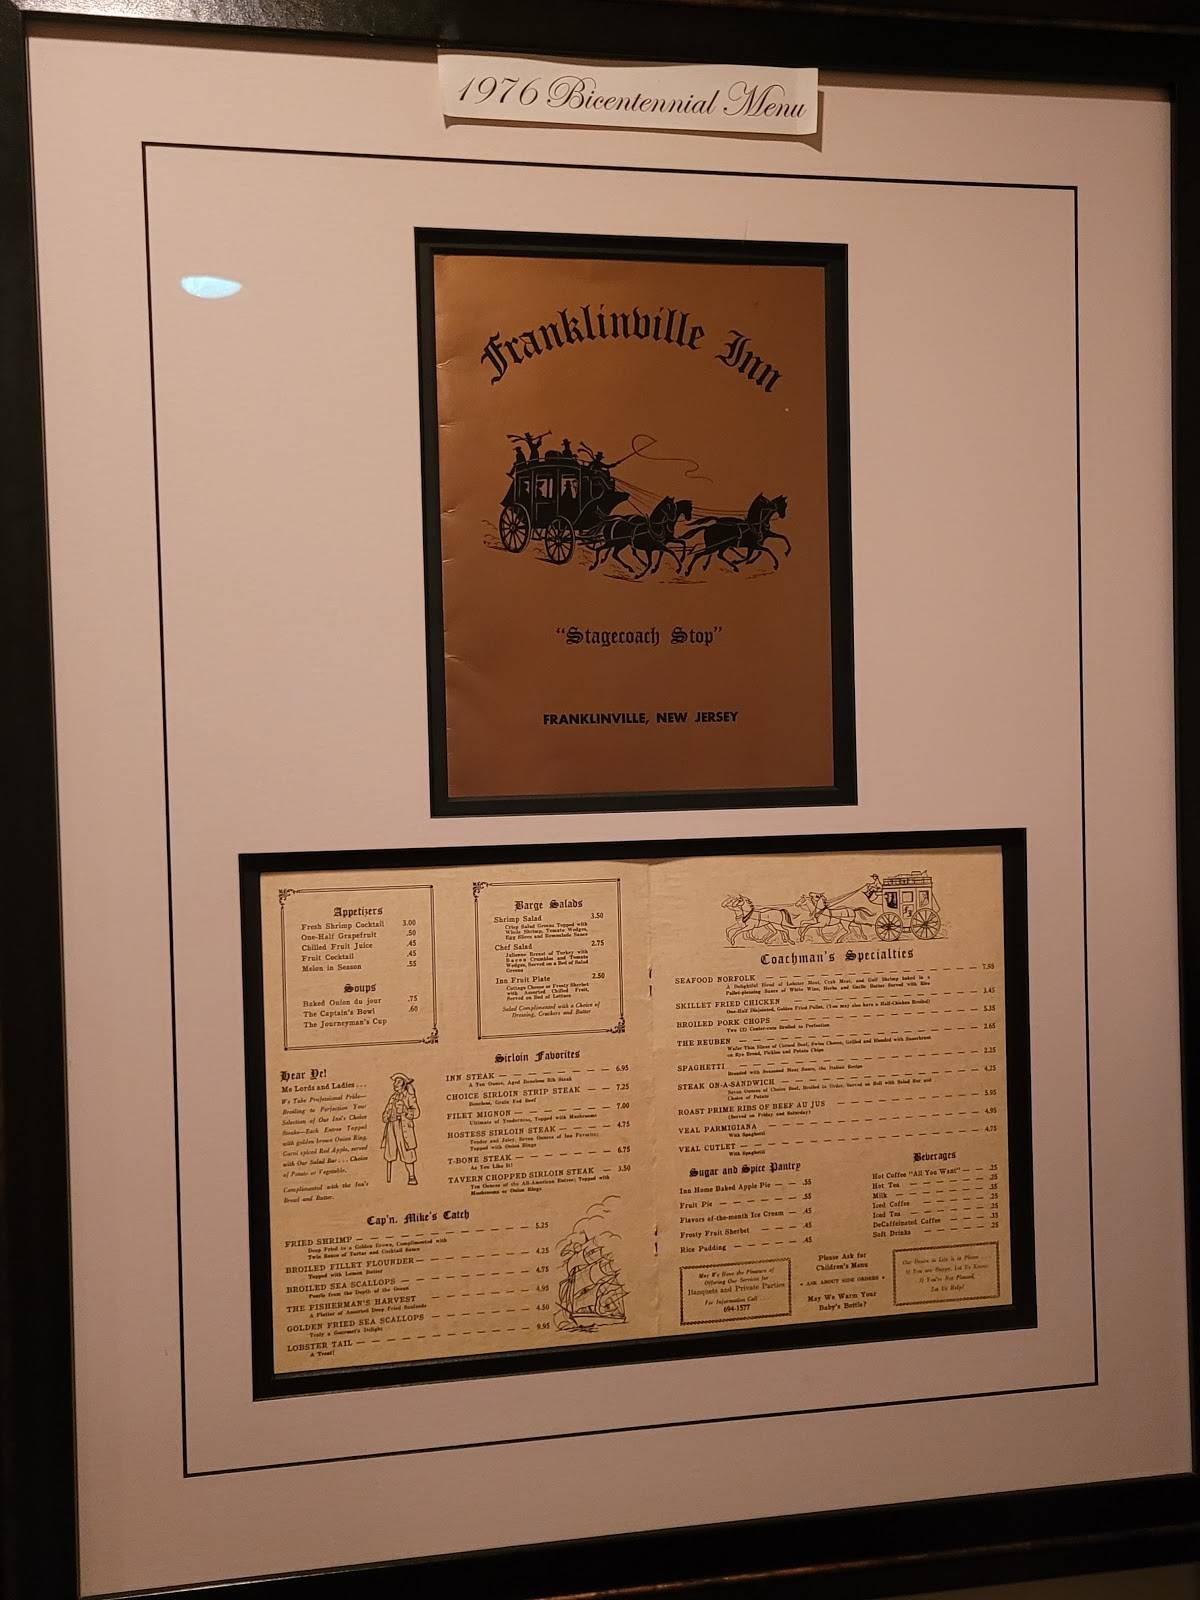 1976 Bicentennial Menu
Franklinville Inn
"Stagecoach Stop"
FRANKLINVILLE, NEW JERSEY
Appetizers
Fresh Shrimp Cocktail 3.00
One-Half Grapefruit .50
Chilled Fruit Juice .45
Fruit Cocktail .45
Melon in Season .55
Soups
Baked Onion du jour .75
The Captain's Bowl .60
The Journeyman's Cup
Barge Salads
Shrimp Salad 3.50
Crisp Salad Greens Topped with
Whole Shrimp, Tomato Wedges,
Egg Slices and Remoulade Sauce
Chef Salad 2.75
Julienne Breast of Turkey with
Bacon Crumbles and Tomato
Wedges, Served on a Bed of Salad
Greens
Inn Fruit Plate 2.50
Cottage Cheese or Frosty Sherbet
with Assorted Chilled Fruit,
Served on Bed of Lettuce
Salad Complimented with a Choice of
Dressing, Crackers and Butter
Hear Ye!
Me Lords and Ladies . . .
We Take Professional Pride—
Broiling to Perfection Your
Selection of Our Inn's Choice
Steaks—Each Entree Topped
with golden brown Onion Ring,
Garni spiced Red Apple, served
with Our Salad Bar . . . Choice
of Potato or Vegetable.
Complimented with the Inn's
Bread and Butter.
Sirloin Favorites
INN STEAK — 6.95
A Ten Ounce, Aged Boneless Rib Steak
CHOICE SIRLOIN STRIP STEAK — 7.25
Boneless, Grain Fed Beef
FILET MIGNON — 7.00
Ultimate of Tenderness, Topped with Mushrooms
HOSTESS SIRLOIN STEAK — 4.75
Tender and Juicy, Seven Ounces of Inn Favorite;
Topped with Onion Rings
T-BONE STEAK — 6.75
As You Like It!
TAVERN CHOPPED SIRLOIN STEAK — 3.50
Ten Ounces of the All-American Entree; Topped with
Mushrooms or Onion Rings
Cap'n. Mike's Catch
FRIED SHRIMP — 5.25
Deep Fried to a Golden Brown, Complimented with
Twin Sauce of Tartar and Cocktail Sauce
BROILED FILLET FLOUNDER — 4.25
Topped with Lemon Butter
BROILED SEA SCALLOPS — 4.75
Pearls from the Depth of the Ocean
THE FISHERMAN'S HARVEST — 4.95
A Platter of Assorted Deep Fried Seafoods
GOLDEN FRIED SEA SCALLOPS — 4.50
Truly a Gourmet's Delight
LOBSTER TAIL — 9.95
A Treat!
Coachman's Specialties
SEAFOOD NORFOLK — 7.95
A Delightful Blend of Lobster Meat, Crab Meat, and Gulf Shrimp baked in a
Pallet-pleasing Sauce of White Wine, Herbs and Garlic Butter Served with Rice
SKILLET FRIED CHICKEN — 3.45
One-Half Disjointed, Golden Fried Pullet, (You may also have a Half-Chicken Broiled)
BROILED PORK CHOPS — 5.35
Two (2) Center-cuts Broiled to Perfection
THE REUBEN — 2.65
Wafer Thin Slices of Corned Beef, Swiss Cheese, Grilled and Blended with Sauerkraut
on Rye Bread, Pickles and Potato Chips
SPAGHETTI — 2.25
Blended with Seasoned Meat Sauce, the Italian Recipe
STEAK ON-A-SANDWICH — 4.25
Seven Ounces of Choice Beef, Broiled to Order, Served on Roll with Salad Bar and
Choice of Potato
ROAST PRIME RIBS OF BEEF AU JUS — 5.95
(Served on Friday and Saturday)
VEAL PARMIGIANA — 4.95
With Spaghetti
VEAL CUTLET — 4.75
With Spaghetti
Sugar and Spice Pantry
Inn Home Baked Apple Pie — .55
Fruit Pie — .55
Flavors of-the-month Ice Cream — .45
Frosty Fruit Sherbet — .45
Rice Pudding — .45
Beverages
Hot Coffee "All You Want" — .25
Hot Tea — .25
Milk — .35
Iced Coffee — .25
Iced Tea — .25
DeCaffeinated Coffee — .35
Soft Drinks — .25
May We Have the Pleasure of
Offering Our Services for
Banquets and Private Parties
For Information Call . . .
694-1577
Please Ask for
Children's Menu
• ASK ABOUT SIDE ORDERS •
May We Warm Your
Baby's Bottle?
Our Desire in Life is to Please . . .
If You are Happy, Let Us Know;
If You're Not Pleased,
Let Us Help!